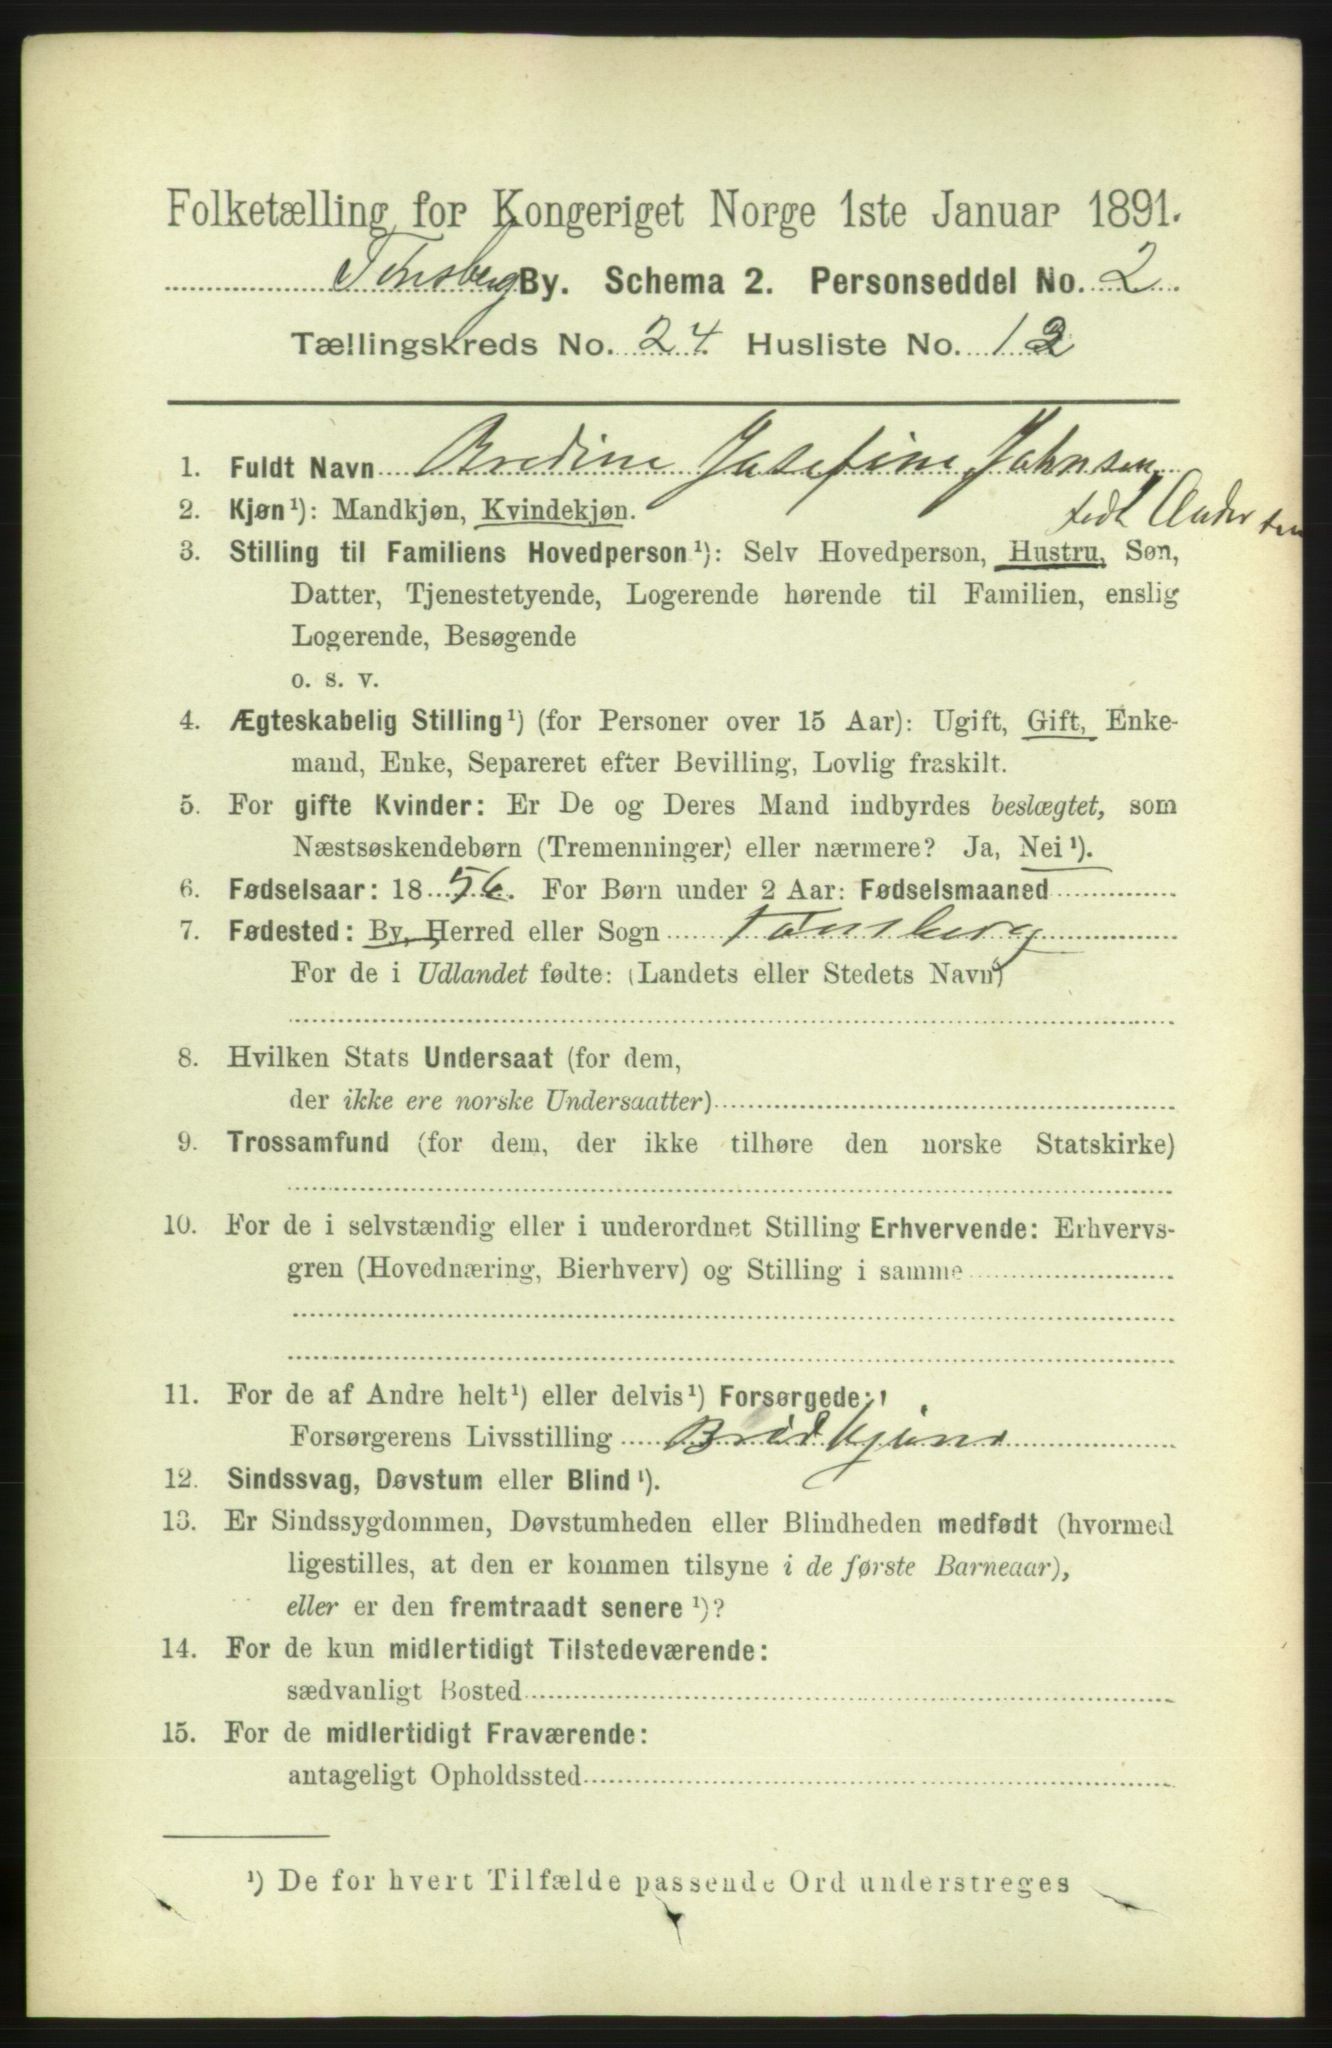 Folketælling for Kongeriget Norge 1ste Januar 1891.
Tønsberg By. Schema 2. Personseddel No. 2
Tællingskreds No. 24. Husliste No. 12
1. Fuldt Navn Josefine Johnsen
født Andersen
2. Kjøn¹): Mandkjøn, Kvindekjøn.
3. Stilling til Familiens Hovedperson¹): Selv Hovedperson, Hustru, Søn,
Datter, Tjenestetyende, Logerende hørende til Familien, enslig
Logerende, Besøgende
o. s. v.
4. Ægteskabelig Stilling¹) (for Personer over 15 Aar): Ugift, Gift, Enke-
mand, Enke, Separeret efter Bevilling, Lovlig fraskilt.
5. For gifte Kvinder: Er De og Deres Mand indbyrdes beslægtet, som
Næstsøskendebørn (Tremenninger) eller nærmere? Ja, Nei¹).
6. Fødselsaar: 1856. For Børn under 2 Aar: Fødselsmaaned
7. Fødested: By, Herred eller Sogn Tønsberg
For de i Udlandet fødte: (Landets eller Stedets Navn)
8. Hvilken Stats Undersaat (for dem,
der ikke ere norske Undersaatter)
9. Trossamfund (for dem, der ikke tilhøre den norske Statskirke)
10. For de i selvstændig eller i underordnet Stilling Erhvervende: Erhvervs-
gren (Hovednæring, Bierhverv) og Stilling i samme
11. For de af Andre helt¹) eller delvis¹) Forsørgede:
Forsørgerens Livsstilling
12. Sindssvag, Døvstum eller Blind¹).
13. Er Sindssygdommen, Døvstumheden eller Blindheden medfødt (hvormed
ligestilles, at den er kommen tilsyne i de første Barneaar),
eller er den fremtraadt senere¹)?
14. For de kun midlertidigt Tilstedeværende:
sædvanligt Bosted
15. For de midlertidigt Fraværende:
antageligt Opholdssted
¹) De for hvert Tilfælde passende Ord understreges